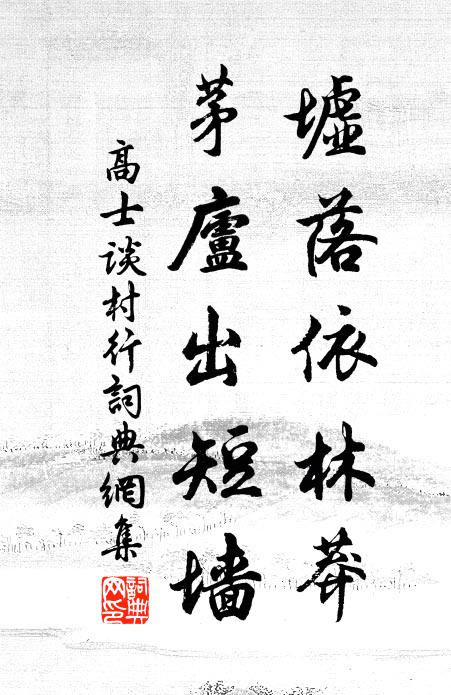 墟落依林莽
茅廬出短墙
高士談村行詞典網集
詞典网印